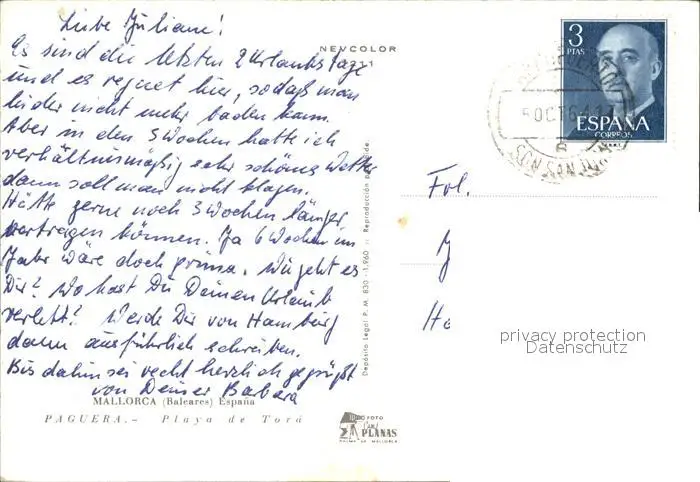 Liebe Juliane!
Es sind die letzten 2 Urlaubstage
und es regnet hier, sodaß man
leider nicht mehr baden kann.
Aber in den 3 Wochen hatte ich
verhältnismäßig sehr schönes Wetter
dann soll man nicht klagen.
Hätte gerne noch 3 Wochen länger
vertragen können. Ja 6 Wochen im
Jahr wäre doch prima. Wie geht es
Dir? Wo hast Du Deinen Urlaub
verlebt? Werde Dir von Hamburg
dann ausführlich schreiben.
Bis dahin sei recht herzlich gegrüßt
von Deiner Barbara
MALLORCA (Baleares) España
PAGUERA.- Playa de Torá
NEVCOLOR
Depósito Legal P. M. 830 - 1.960 :: Reproducción
FOTO
PLANAS
PALMA DE MALLORCA
3
PTAS
ESPAÑA
CORREOS
5 OCT 64
SON SAN JUAN
Frl.
J
Ha
privacy protection
Datenschutz